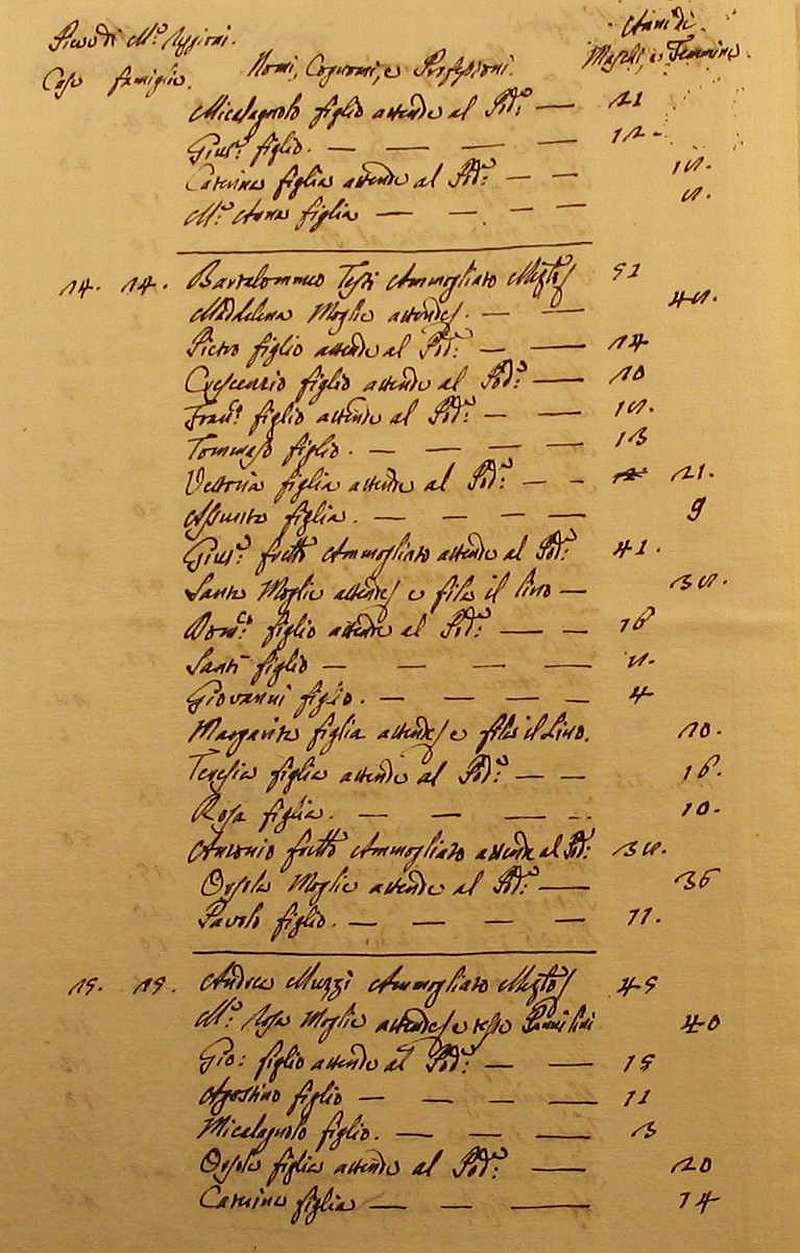 Anni di
Case famiglie. Nomi, Cognomi, e Professioni. Maschi, e Femmine.
Micalagnolo figlio attende al Pod.e — 21
Gius.e figlio. — — — — 12 -
Caterina figlia attende al Pod.e — —
M.a Anna figlia — — — —
14. 14. Bartolommeo Testi Ammogliato 52
Maddalena Moglie attende. — —
Pietro figlio attende al Pod.e — — 14
Crescenzio figlio attende al Pod.e — 10
Fran.co figlio attende al Pod.e — —
Tommaso figlio. — — — — 13
Vettoria figlia attende al Pod.e — — 21.
Assunta figlia. — — — — 9
Gius.e frello Ammogliato attende al Pod.e 41.
Santa Moglie attende e fila il lino —
Dom.co figlio attende al Pod.e — — 16
Santi figlio — — — —
Giovanni figlio. — — — — 4
Margarita figlia attende e fila il Lino. 20.
Teresia figlia attende al Pod.e — — 16.
Rosa figlia. — — — — 10.
Antonio frello Ammogliato attende al Pod.e
Orsola Moglie attende al Pod.e — 36
Pavolo figlio. — — — — 11.
15. 15. Andrea Muzzi Ammogliato 45
M.a Rosa Moglie attende e tesse Pannilini 40
Gio: figlio attende al Pod.e — — 15
Agostino figlio — — — — 11
Micalagnolo figlio. — — — 3
Orsola figlia attende al Pod.e — 20
Caterina figlia — — — 14